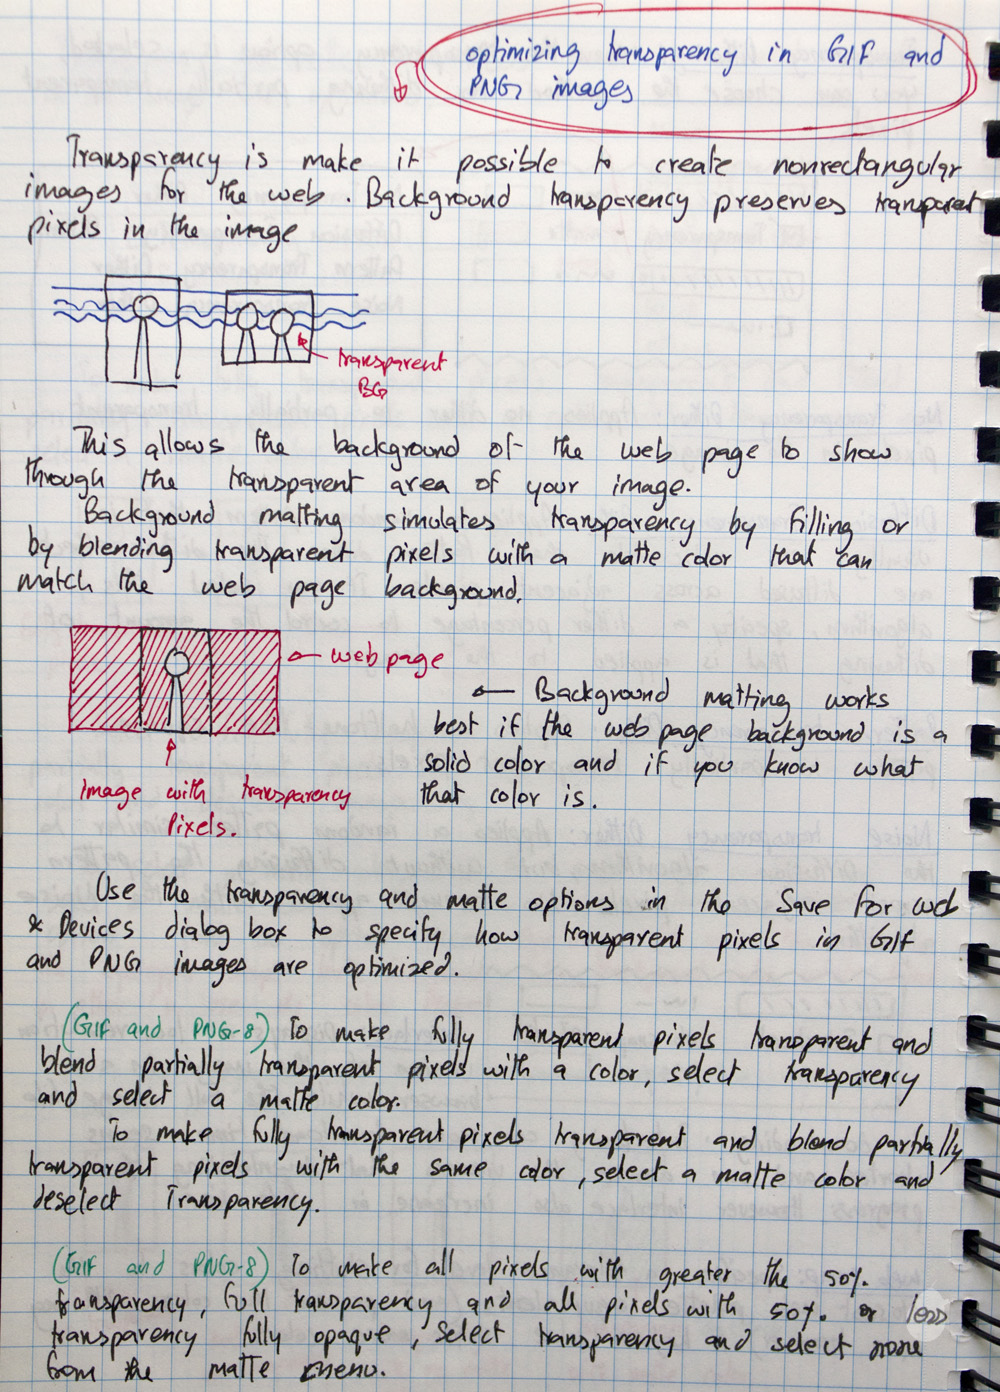 optimizing transparency in GIF and
PNG images
Transparency is make it possible to create nonrectangular
images for the web. Background transparency preserves transparent
pixels in the image
transparent
BG
This allows the background of the web page to show
through the transparent area of your image.
Background matting simulates transparency by filling or
by blending transparent pixels with a matte color that can
match the web page background.
← web page
← Background matting works
best if the web page background is a
solid color and if you know what
that color is.
image with transparency
Pixels.
Use the transparency and matte options in the Save for web
& Devices dialog box to specify how transparent pixels in GIF
and PNG images are optimized.
(GIF and PNG-8) To make fully transparent pixels transparent and
blend partially transparent pixels with a color, select transparency
and select a matte color.
To make fully transparent pixels transparent and blend partially
transparent pixels with the same color, select a matte color and
deselect Transparency.
(GIF and PNG-8) To make all pixels with greater the 50%
transparency, full transparency and all pixels with 50% or less
transparency fully opaque, select transparency and select none
from the matte menu.